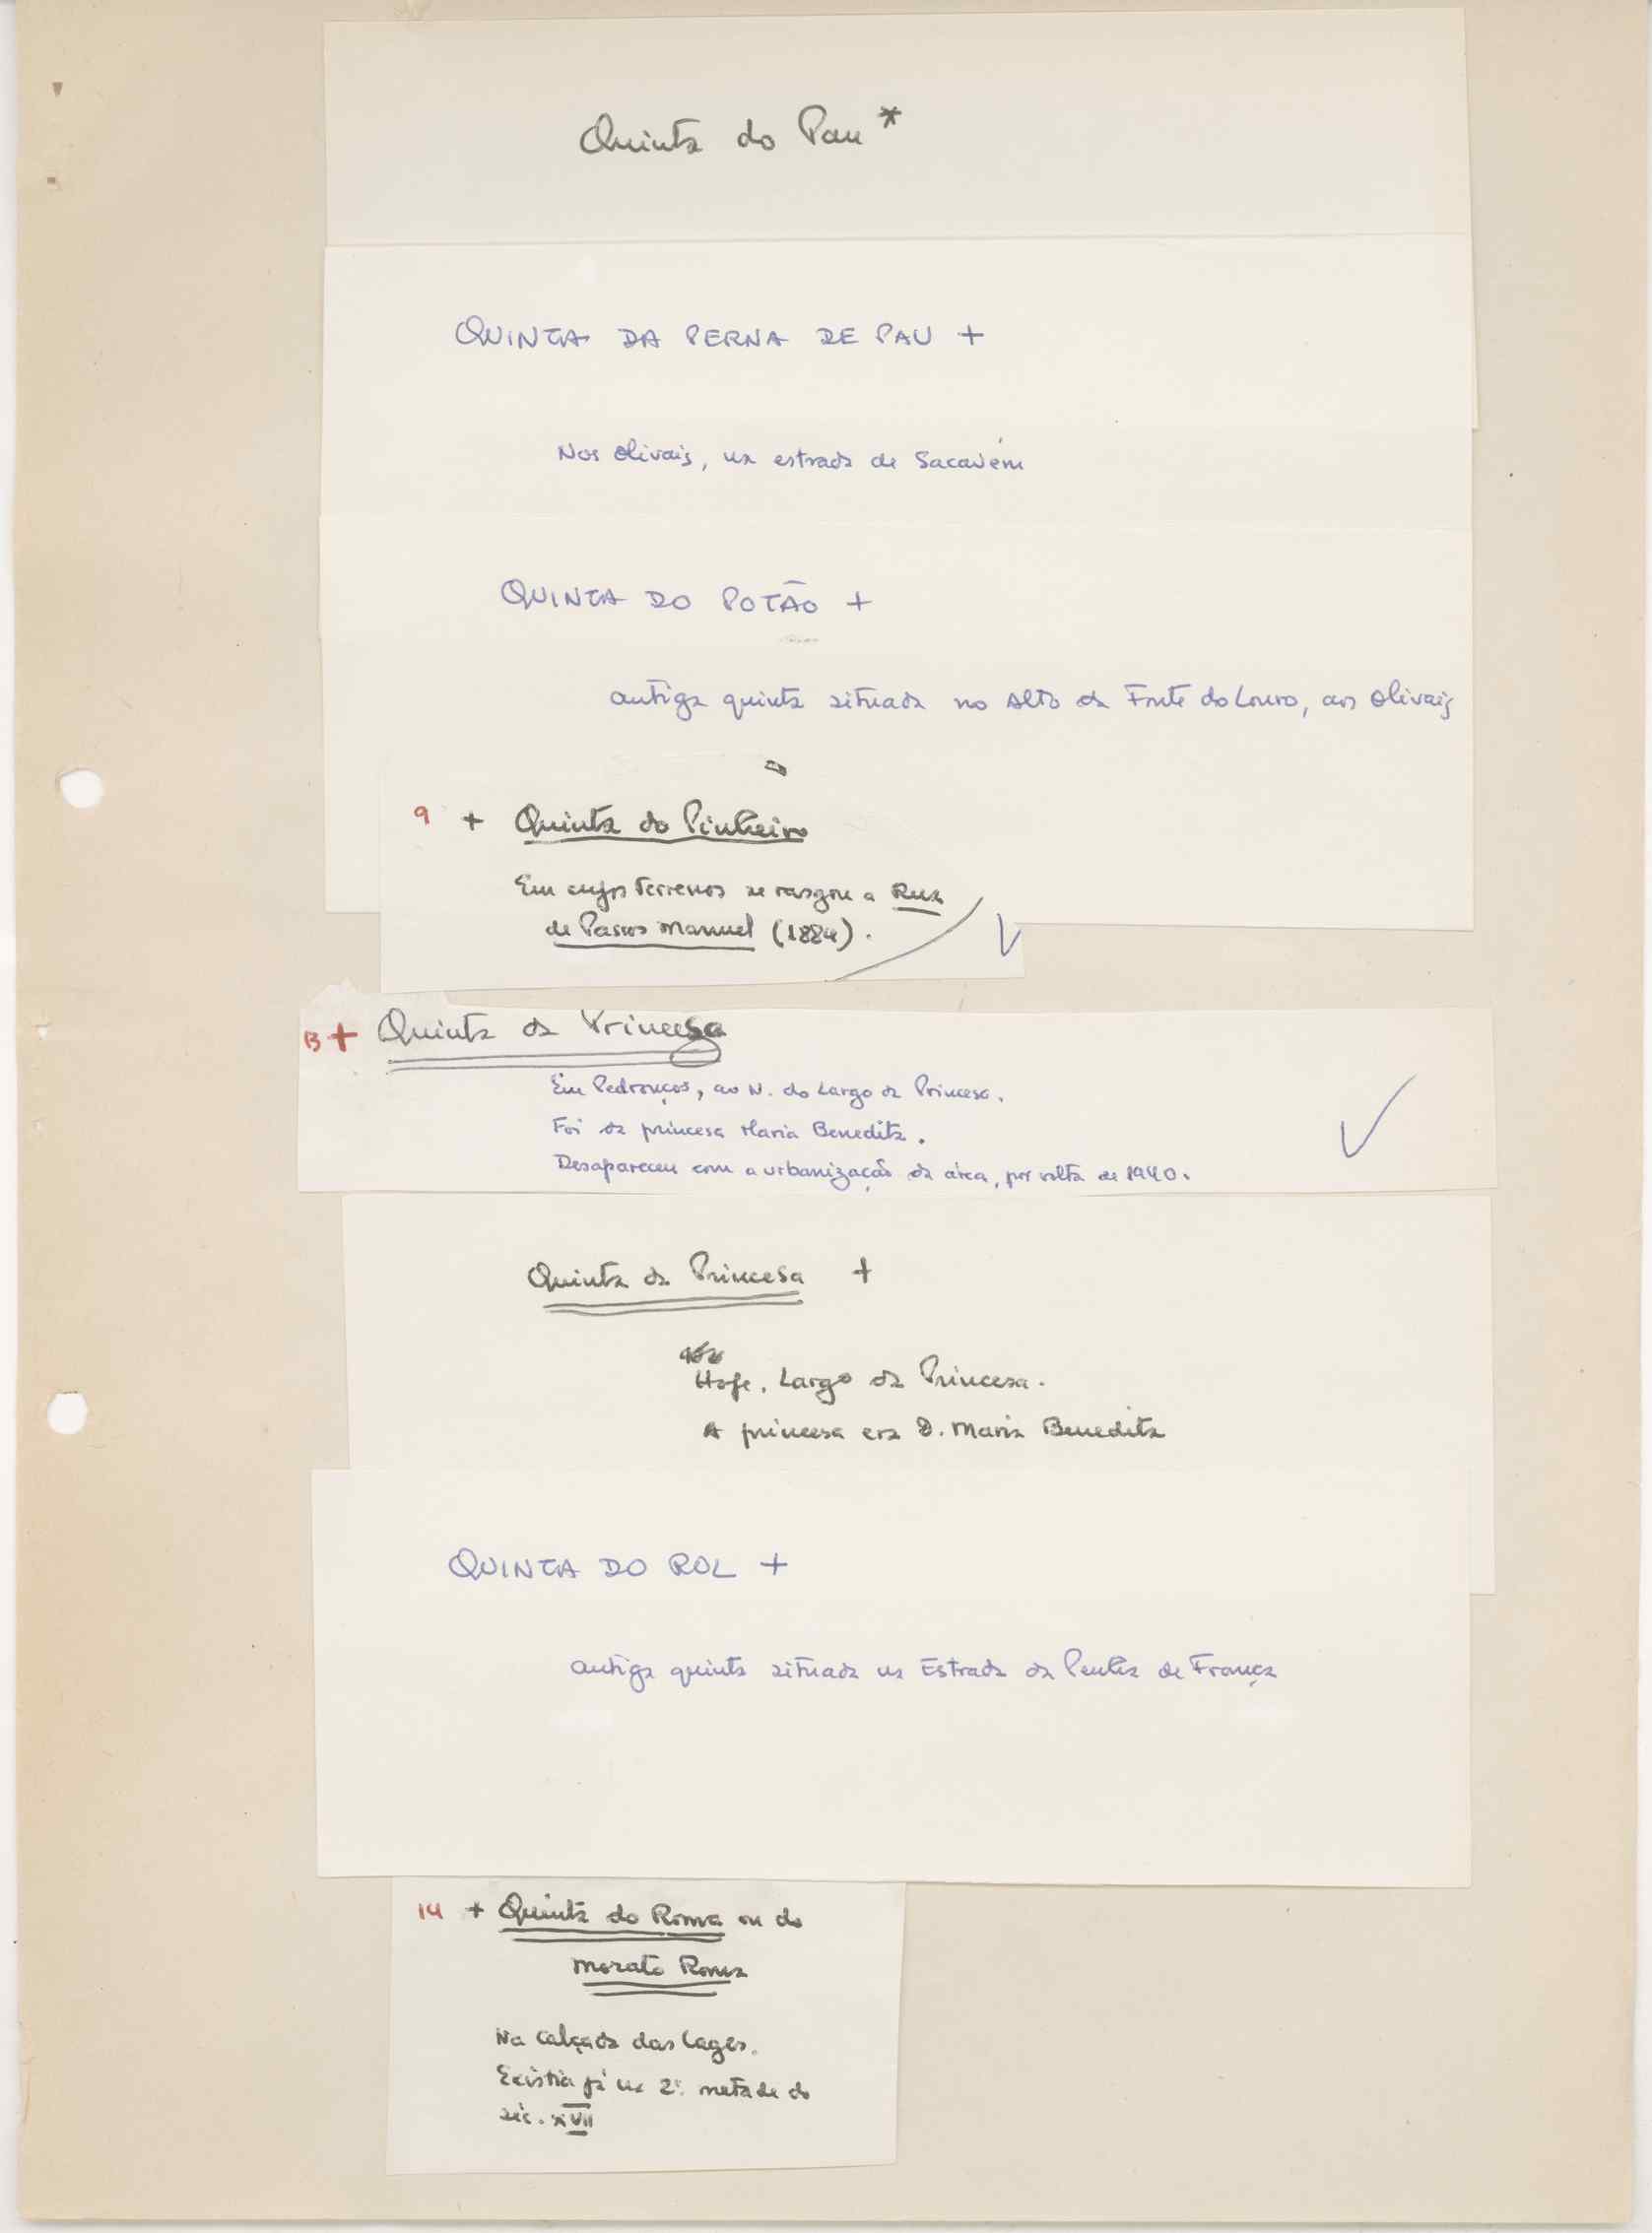 Quinta do Pau *
QUINTA DA PERNA DE PAU +
Nos Olivais, na estrada de Sacavém
QUINTA DO POTÃO +
Antiga quinta situada no Alto da Fonte do Louro, aos Olivais
9 + Quinta do Pinheiro
Em cujos terrenos se rasgou a Rua
de Passos Manuel (1884).
13 + Quinta da Princesa
Em Pedrouços, ao N. do Largo da Princesa.
Foi da princesa Maria Benedita.
Desapareceu com a urbanização da área, por volta de 1940.
Quinta da Princesa +
Hoje, Largo da Princesa.
A princesa era D. Maria Benedita
QUINTA DO ROL +
Antiga quinta situada na Estrada da Penha de França
14 + Quinta do Roma ou do
Morato Roma
Na Calçada das Lages.
Existia já na 2ª metade do
séc. XVII